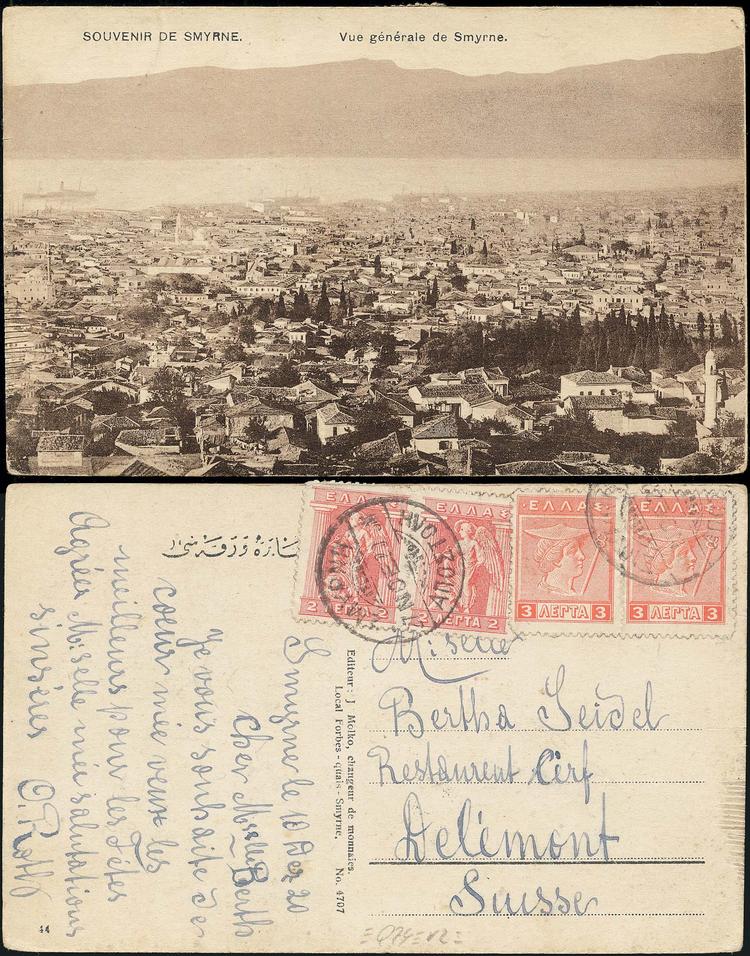 SOUVENIR DE SMYRNE.
Vue générale de Smyrne.
ΕΛΛΑΣ
2 ΛΕΠΤΑ 2
ΕΛΛΑΣ
2 ΛΕΠΤΑ 2
ΕΛΛΑΣ
3 ΛΕΠΤΑ 3
ΕΛΛΑΣ
3 ΛΕΠΤΑ 3
Smyrne le 10 Dez 20
Cher Mselle Berth
Je vous souhaite de
coeur mée veux les
meilleurs pour les Fêtes
Agréer Mselle mée salutations
sinsères
O. Roth
44
Editeur: J Molko, changeur de monnaies.
Local Forbes - quais - Smyrne. No. 4707
Mselle
Bertha Seidel
Restaurent Cerf
Delémont
Suisse